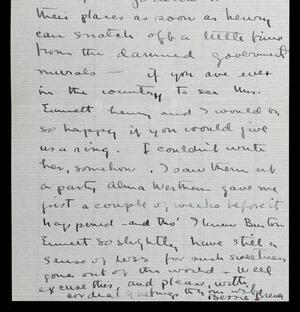 their places as soon as henry
can snatch off a little time
from the damned government
murals — if you are ever
in the country to see Mrs.
Emmett henry and I would be
so happy if you would give
us a ring. I couldn't write
her, somehow. I saw them at
a party Alma Wertheim gave me
just a couple of weeks before it
happened - and tho' I knew Burton
Emmett so slightly have still a
sense of loss for such sweetness
gone out of the world - Well
excuse this, and please, with
cordial greetings to your wife
Bessie Breuer